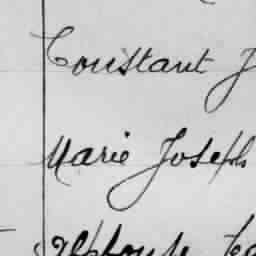 Constant J
Marie Joseph
Alphonse